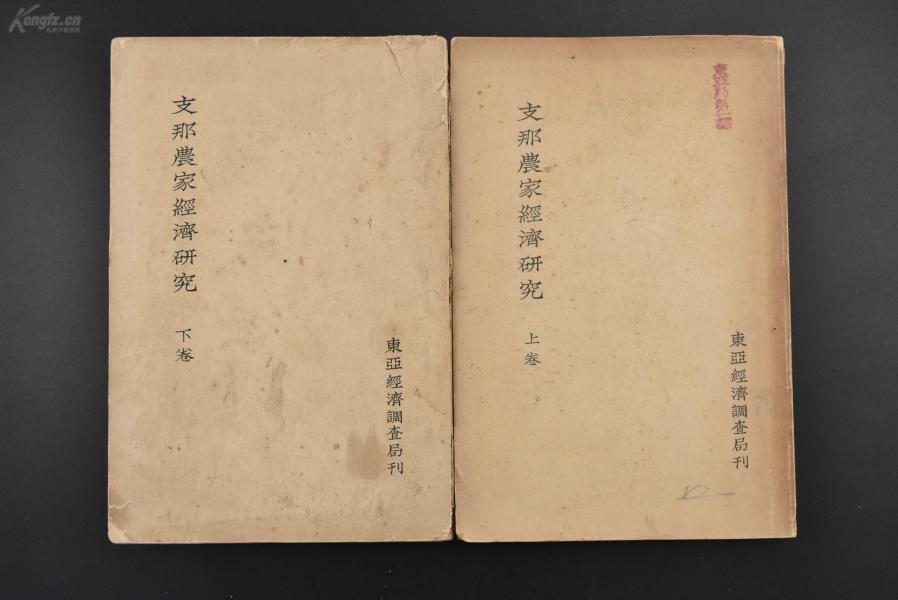 Kongfz.cn
支那農家經濟研究
下卷
東亞經濟調查局刊
支那農家經濟研究
上卷
東亞經濟調查局刊